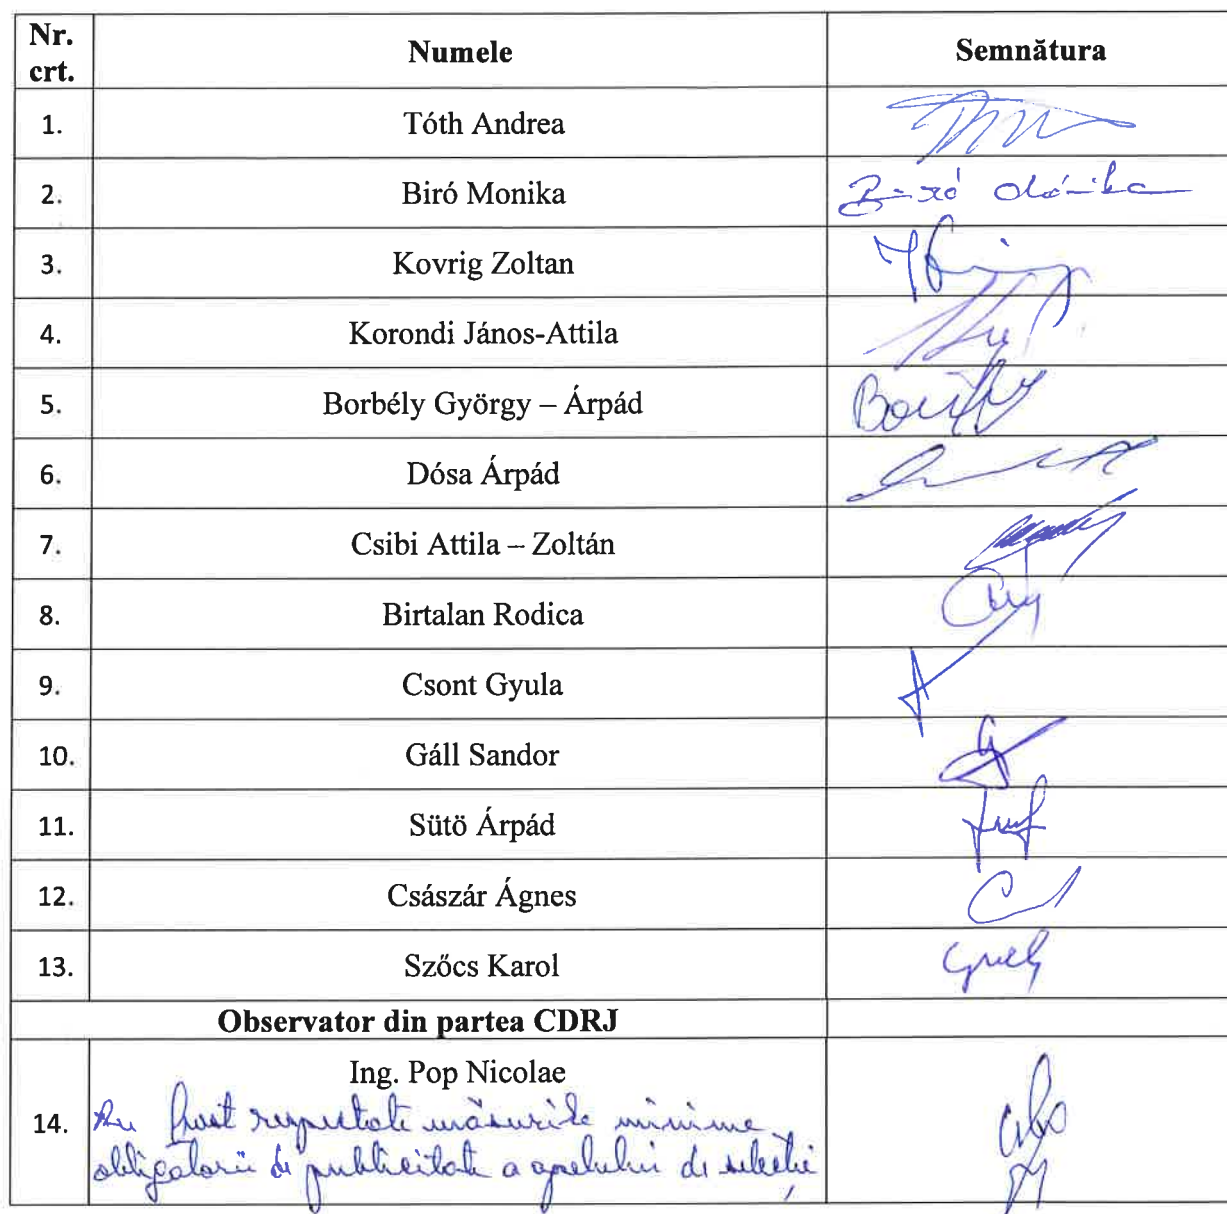 Nr. crt. Numele Semnătura
1. Tóth Andrea
2. Biró Monika Biró Mónika
3. Kovrig Zoltan
4. Korondi János-Attila
5. Borbély György – Árpád
6. Dósa Árpád
7. Csibi Attila – Zoltán
8. Birtalan Rodica
9. Csont Gyula
10. Gáll Sandor
11. Sütö Árpád
12. Császár Ágnes
13. Szőcs Karol
Observator din partea CDRJ
14. Ing. Pop Nicolae
Au fost respectate măsurile minime
obligatorii de publicitate a apelului de selecție